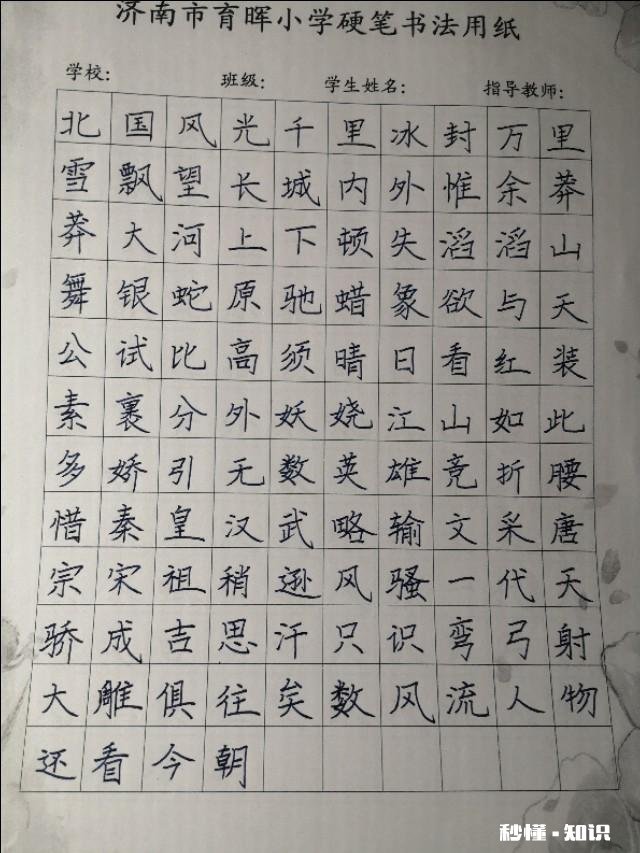 济南市育晖小学硬笔书法用纸
学校: 班级: 学生姓名: 指导教师:
北国风光千里冰封万里
雪飘望长城内外惟余莽
莽大河上下顿失滔滔山
舞银蛇原驰蜡象欲与天
公试比高须晴日看红装
素裹分外妖娆江山如此
多娇引无数英雄竞折腰
惜秦皇汉武略输文采唐
宗宋祖稍逊风骚一代天
骄成吉思汗只识弯弓射
大雕俱往矣数风流人物
还看今朝
秒懂·知识